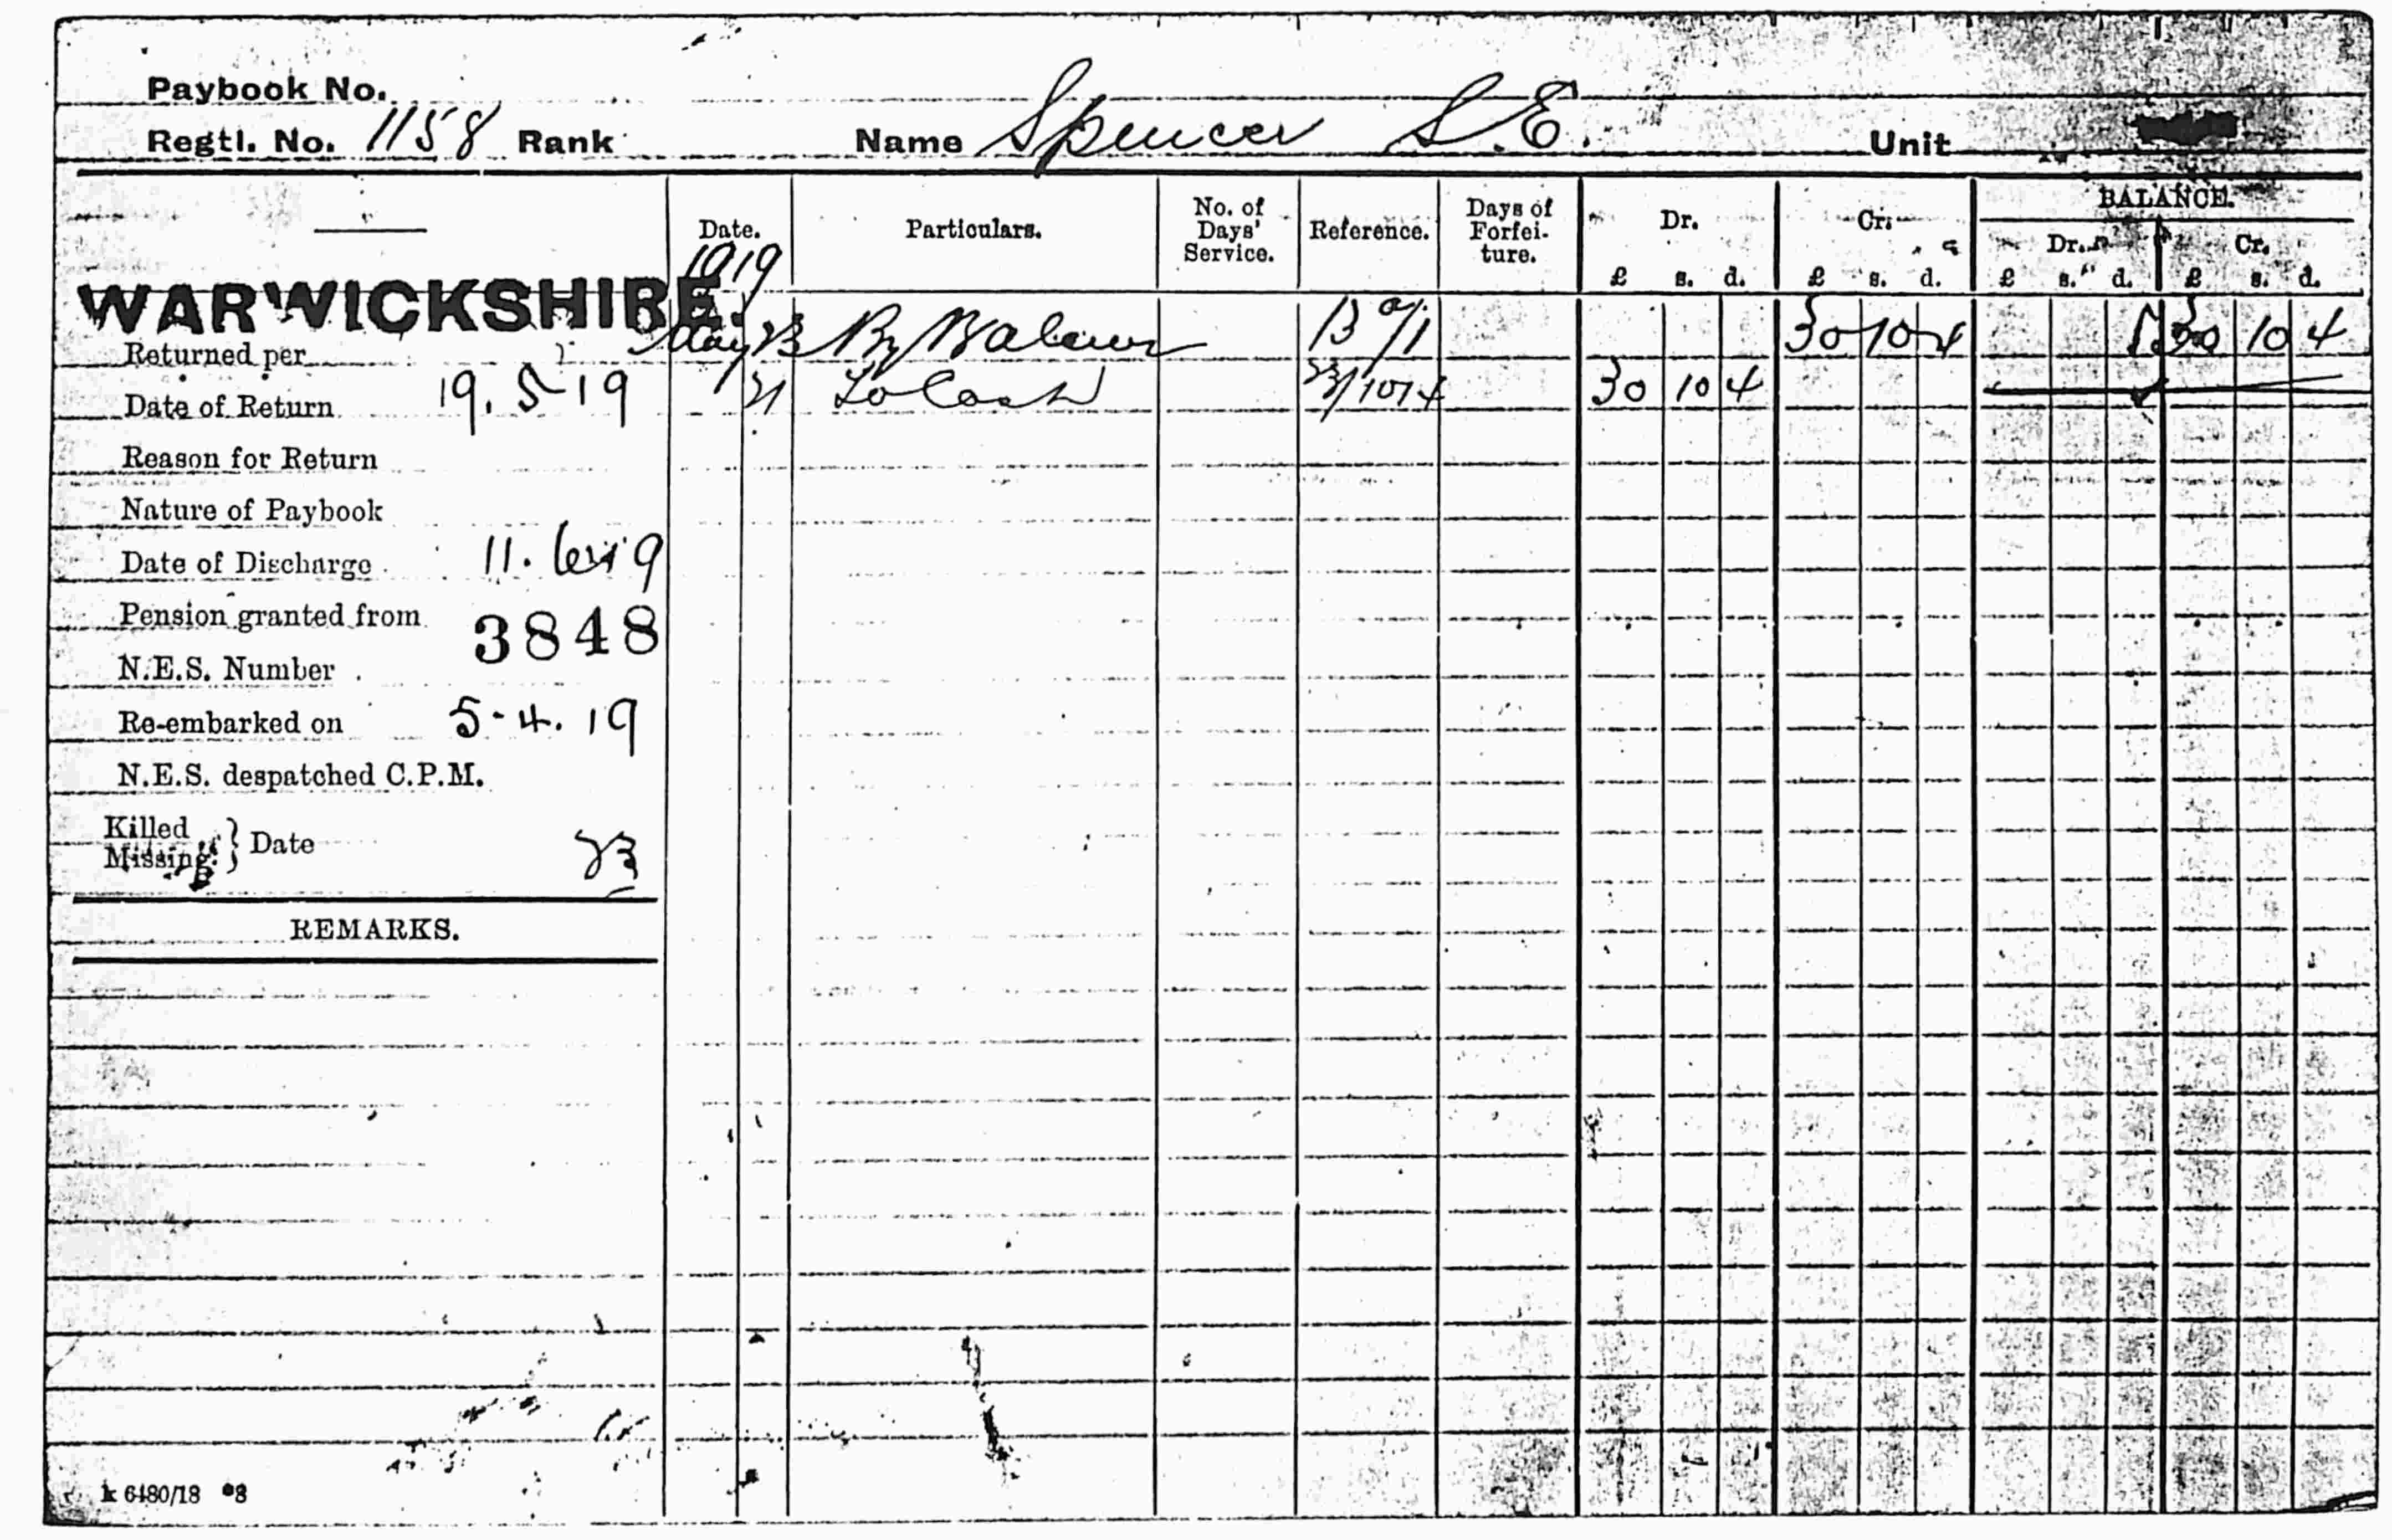 Paybook No.
Regtl. No. 1158 Rank Name Spencer S.E. Unit
Date. Particulars. No. of Days' Service. Reference. Days of Forfei-ture. Dr. Cr. BALANCE.
Dr. Cr.
£ s. d. £ s. d. £ s. d. £ s. d.
1919
WARWICKSHIRE.
May 23 By Balance 30 10 4 30 10 4
Returned per
31 To Cash 30 10 4
Date of Return 19.5 19
Reason for Return
Nature of Paybook
Date of Discharge 11.
Pension granted from
3848
N.E.S. Number
Re-embarked on 5-4.19
N.E.S. despatched C.P.M.
Killed
Missing } Date 23
REMARKS.
k 6480/18